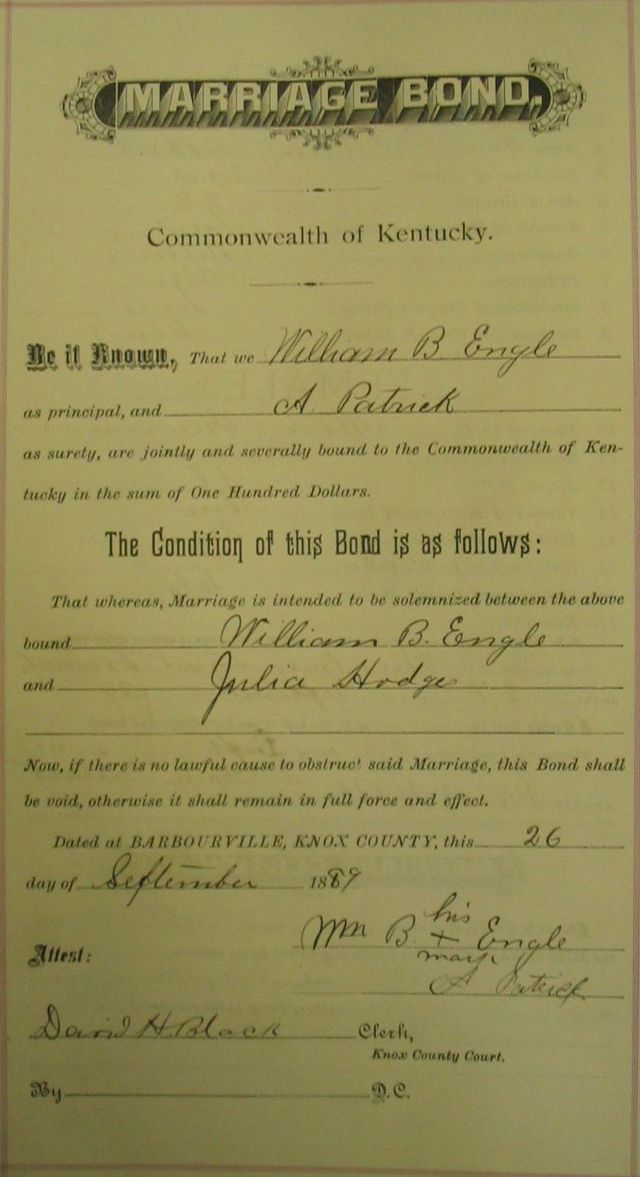 MARRIAGE BOND,
Commonwealth of Kentucky.
Be it Known, That we William B Engle
as principal, and A. Patrick
as surety, are jointly and severally bound to the Commonwealth of Ken-
tucky in the sum of One Hundred Dollars.
The Condition of this Bond is as follows:
That whereas, Marriage is intended to be solemnized between the above
bound William B. Engle
and Julia Hodge
Now, if there is no lawful cause to obstruct said Marriage, this Bond shall
be void, otherwise it shall remain in full force and effect.
Dated at BARBOURVILLE, KNOX COUNTY, this 26
day of September 1889
his
Wm B. x Engle
mark
Attest:
A Patrick
David H. Black Clerk,
Knox County Court.
By D.C.